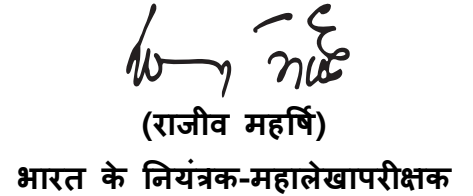 (राजीव महर्षि)
भारत के नियंत्रक-महालेखापरीक्षक